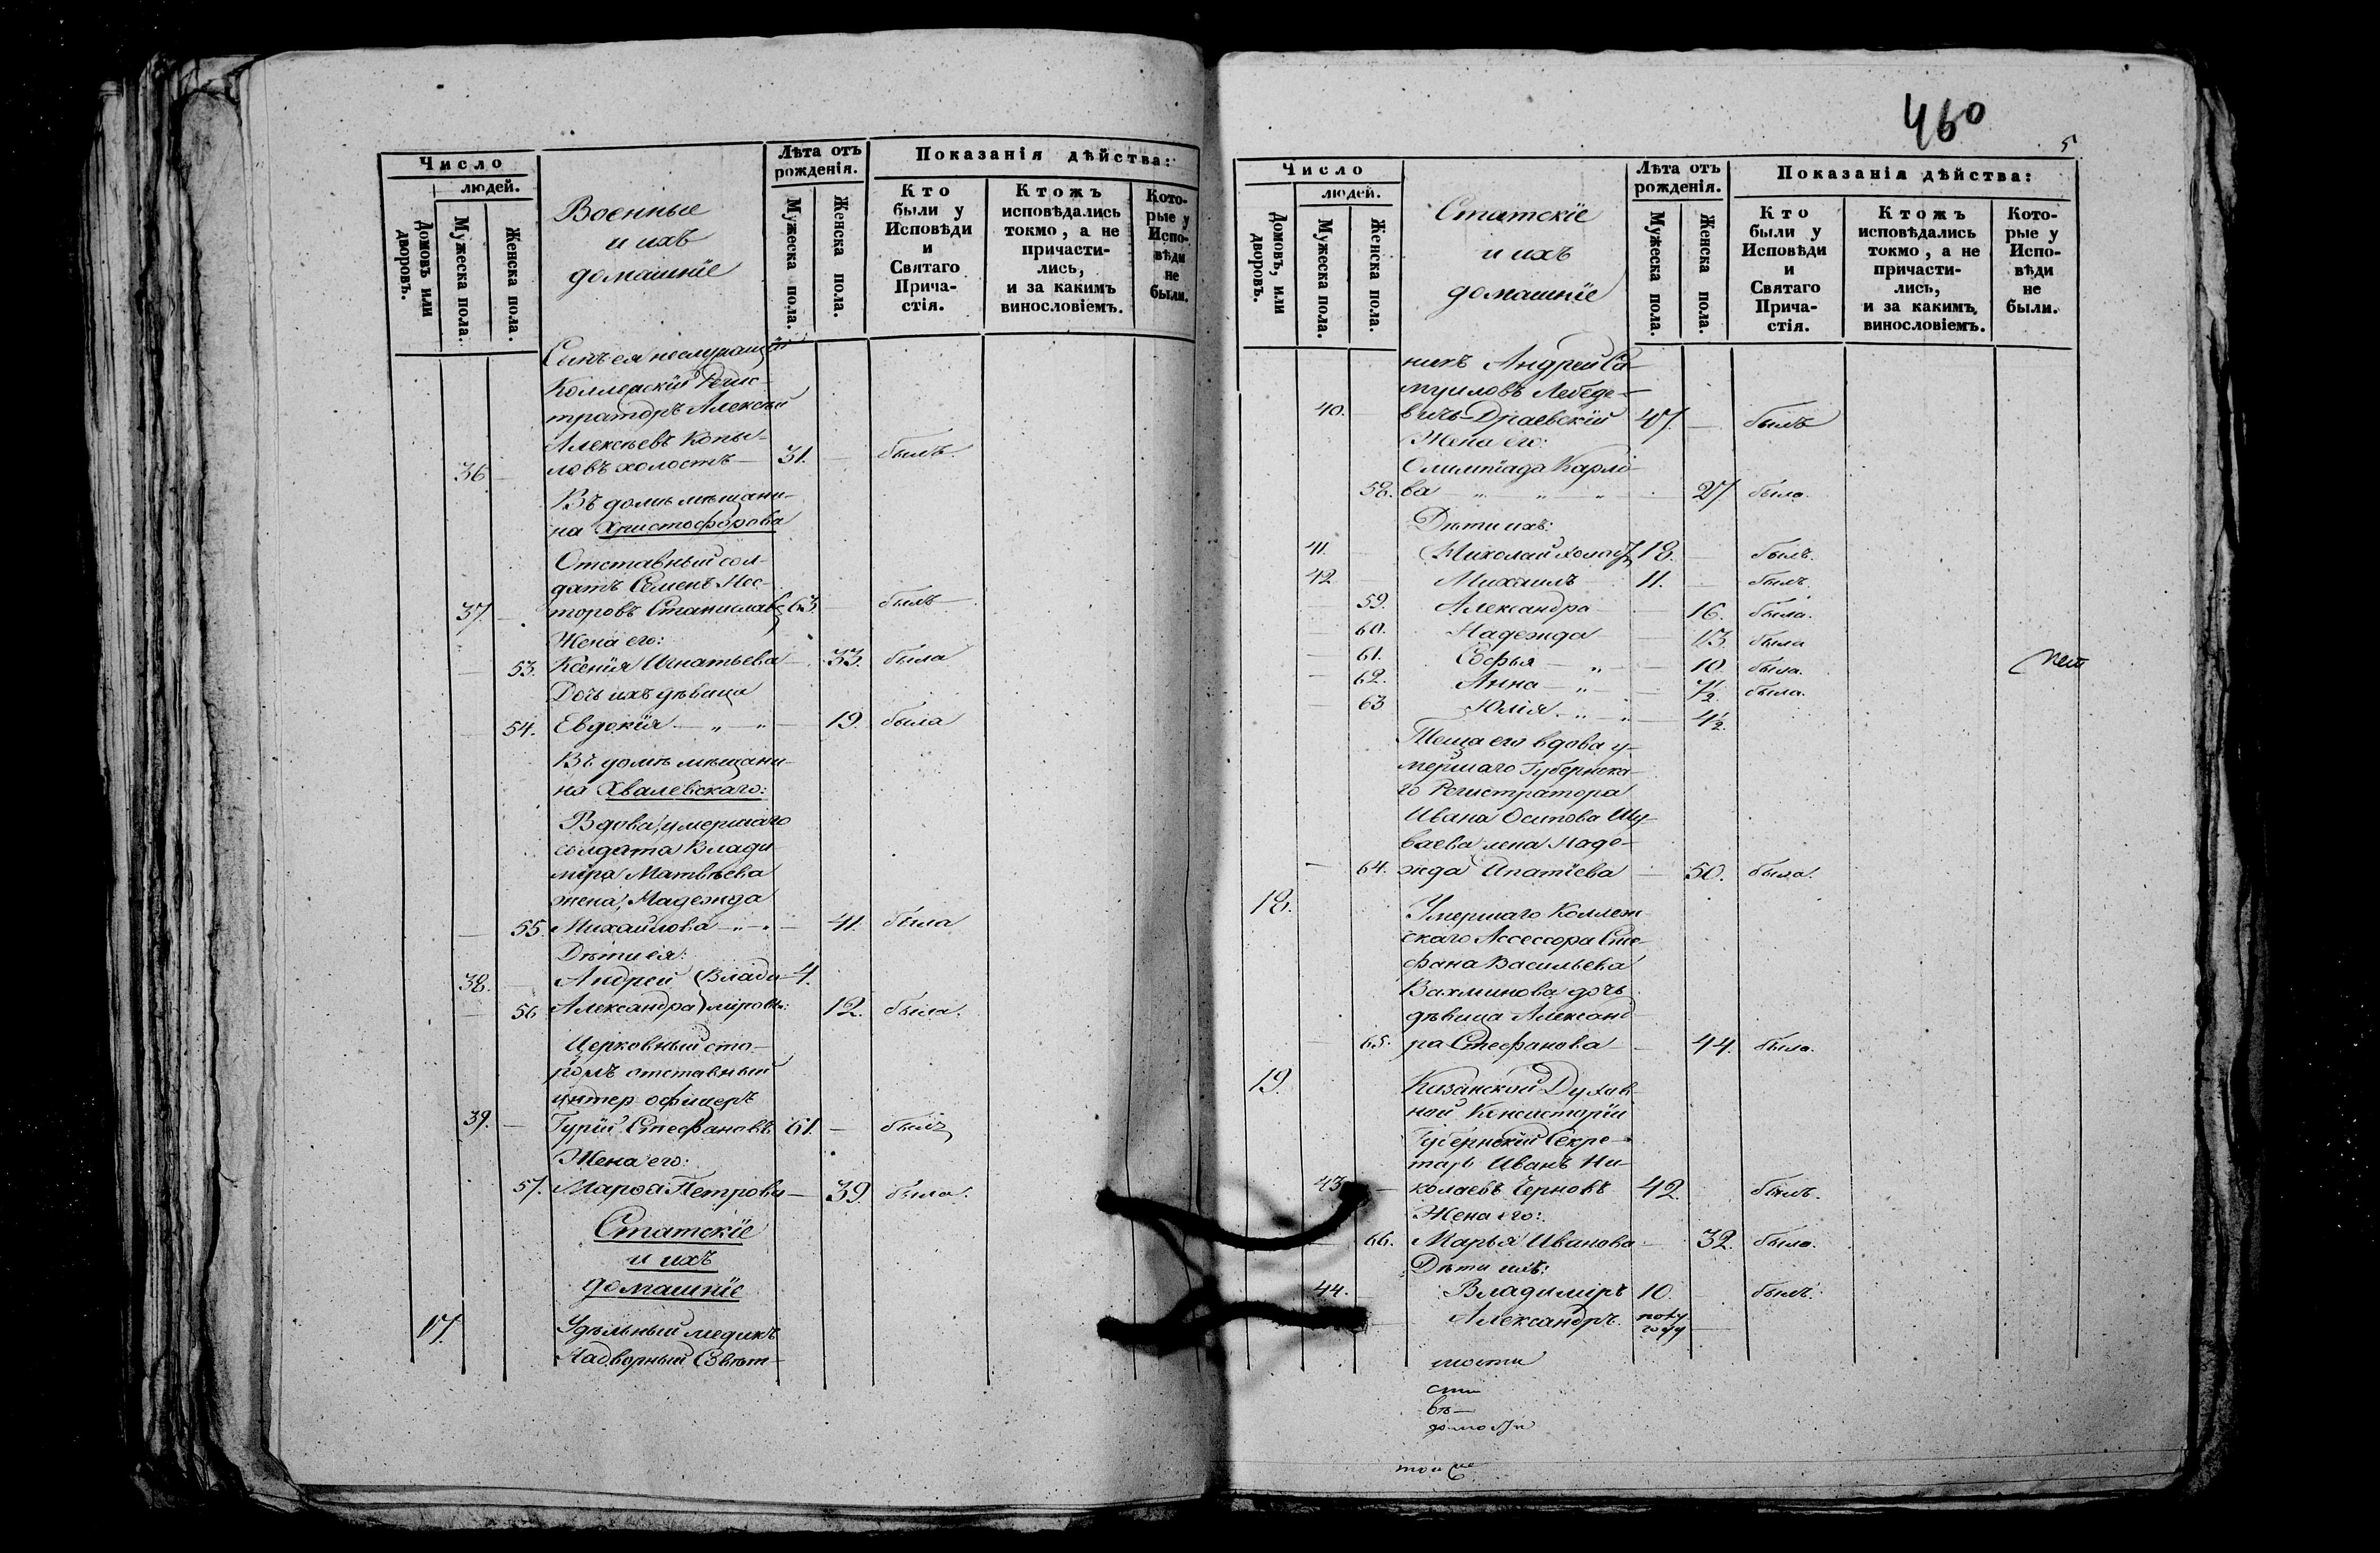 Число
людей.
Домовъ или дворовъ.
Мужеска пола.
Женска пола.
Военные
и ихъ
домашніе
Лѣта отъ
рожденія.
Мужеска пола.
Женска пола.
Показанія дѣйства:
Кто
были у
Исповѣди
и
Святаго
Прича-
стія.
Ктожъ
исповѣдались
токмо, а не
причасти-
лись,
и за какимъ
винословіемъ.
Кото-
рые у
Испо-
вѣди
не
были.
Сынъ ея неслужащій
Коллежскій Регис-
траторъ Алексѣй
Алексѣевъ Копы-
36. ловъ холостъ — 31. — былъ.
Въ домѣ мѣщани-
на Христофорова
Отставный сол-
датъ Семенъ Нес-
37. — торовъ Станиславъ 63. — былъ —
Жена его:
— 53. Ксенія Игнатьева — 33. была
Дочь ихъ дѣвица
— 54. Евдокія — „ — „ — 19. была
Въ домѣ мѣщани-
на Хвалевскаго:
Вдова, умершаго
солдата Влади
міра Матвѣева
жена, Надежда
— 55. Михайлова — „ — „ — 41. была
Дѣти ея:
38. — Андрей (Влади- 4.
— 56 Александра) міровы: 12. была.
Церковный сто-
рожъ отставный
унтер офицеръ
39. — Гурій Стефановъ 61. — былъ
Жена его:
57. Марѳа Петрова — 39. была.
Статскіе
и ихъ
домашніе
17. Удѣльный медикъ
Надворный Совѣт-
460
5
Число
людей.
Домовъ, или дворовъ.
Мужеска пола.
Женска пола.
Статскіе
и ихъ
домашніе
Лѣта отъ
рожденія.
Мужеска пола.
Женска пола.
Показанія дѣйства:
Кто
были у
Исповѣди
и
Святаго
Прича-
стія.
Ктожъ
исповѣдались
токмо, а не
причасти-
лись,
и за какимъ,
винословіемъ.
Кото-
рые у
Испо-
вѣди
не
были.
никъ Андрей Са-
муиловъ Лебеде-
40. вичь-Драевскій 47. — былъ
Жена его:
Олимпіада Карло
58. ва — „ — „ — „ — 27. была.
Дѣти ихъ:
41. — Николай холостъ 18. — былъ.
42. Михаилъ 11. — былъ.
59. Александра — 16. была.
60. Надежда — 13. была
— 61. Софья — „ — 10. была.
— 62. Анна — „ — 7½. была.
— 63 Юлія — „ — „ — 4½.
Теща его вдова у-
мершаго Губернска-
го Регистратора
Ивана Осипова Шу-
ваева жена Наде-
— 64. жда Ипатіева — 50. была.
18. Умершаго Коллеж
скаго Ассессора Сте-
фана Васильева
Вахминова дочь
дѣвица Александ-
65. ра Стефанова — 44. была.
19. Казанской Духов
ной Консисторіи
Губернскій Секре-
тарь Иванъ Ни-
43. — колаевъ Черновъ 42. былъ.
Жена его:
66. Марья Иванова — 32. была.
Дѣти ихъ:
44. Владиміръ 10. — былъ.
— Александръ. полу
году —
сти
вѣ —